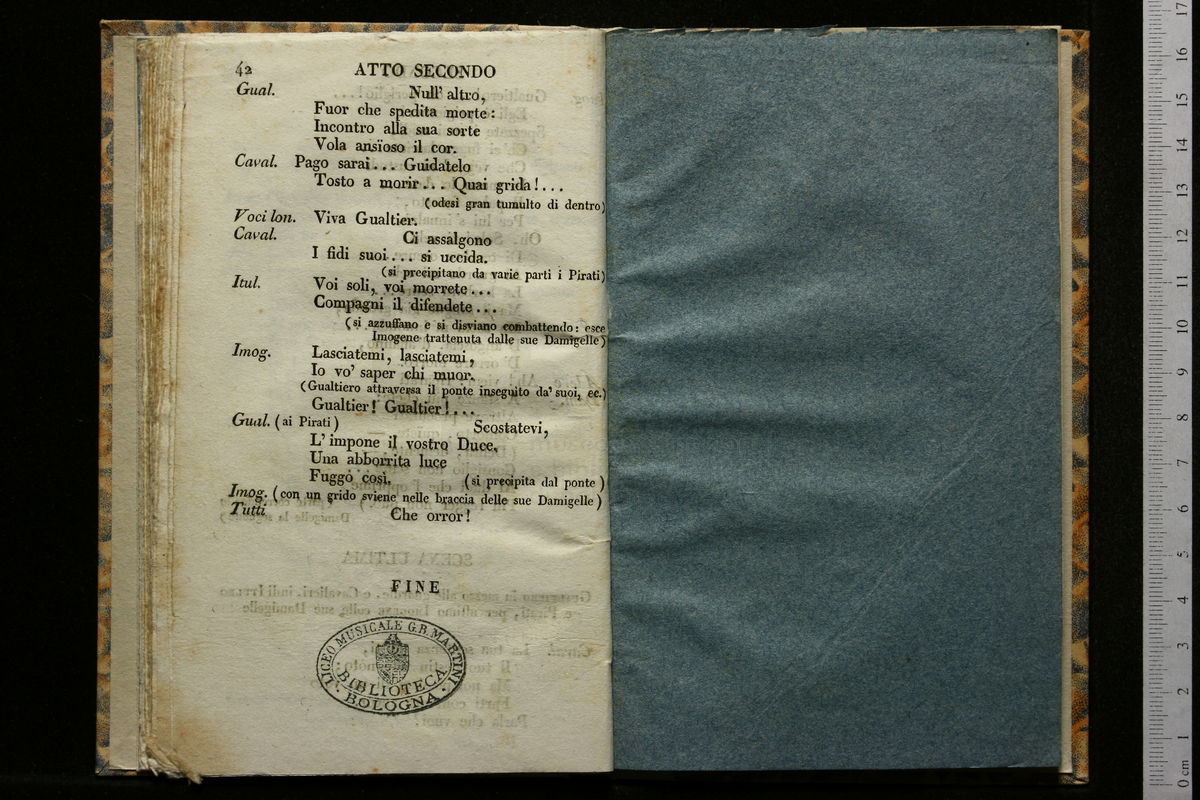 42 ATTO SECONDO
Gual. Null' altro,
Fuor che spedita morte:
Incontro alla sua sorte
Vola ansïoso il cor.
Caval. Pago sarai... Guidatelo
Tosto a morir... Quai grida!...
(odesi gran tumulto di dentro)
Voci lon. Viva Gualtier.
Caval. Ci assalgono
I fidi suoi.... si uccida.
(si precipitano da varie parti i Pirati)
Itul. Voi soli, voi morrete...
Compagni il difendete...
(si azzuffano e si disviano combattendo: esce
Imogene trattenuta dalle sue Damigelle)
Imog. Lasciatemi, lasciatemi,
Io vo' saper chi muor.
(Gualtiero attraversa il ponte inseguito da' suoi, ec.)
Gualtier! Gualtier!...
Gual. (ai Pirati) Scostatevi,
L' impone il vostro Duce.
Una abborrita luce
Fuggo così. (si precipita dal ponte)
Imog. (con un grido sviene nelle braccia delle sue Damigelle)
Tutti Che orror!
FINE
LICEO MUSICALE G.B. MARTINI
BIBLIOTECA
BOLOGNA
17
16
15
14
13
12
11
10
9
8
7
6
5
4
3
2
1
0 cm